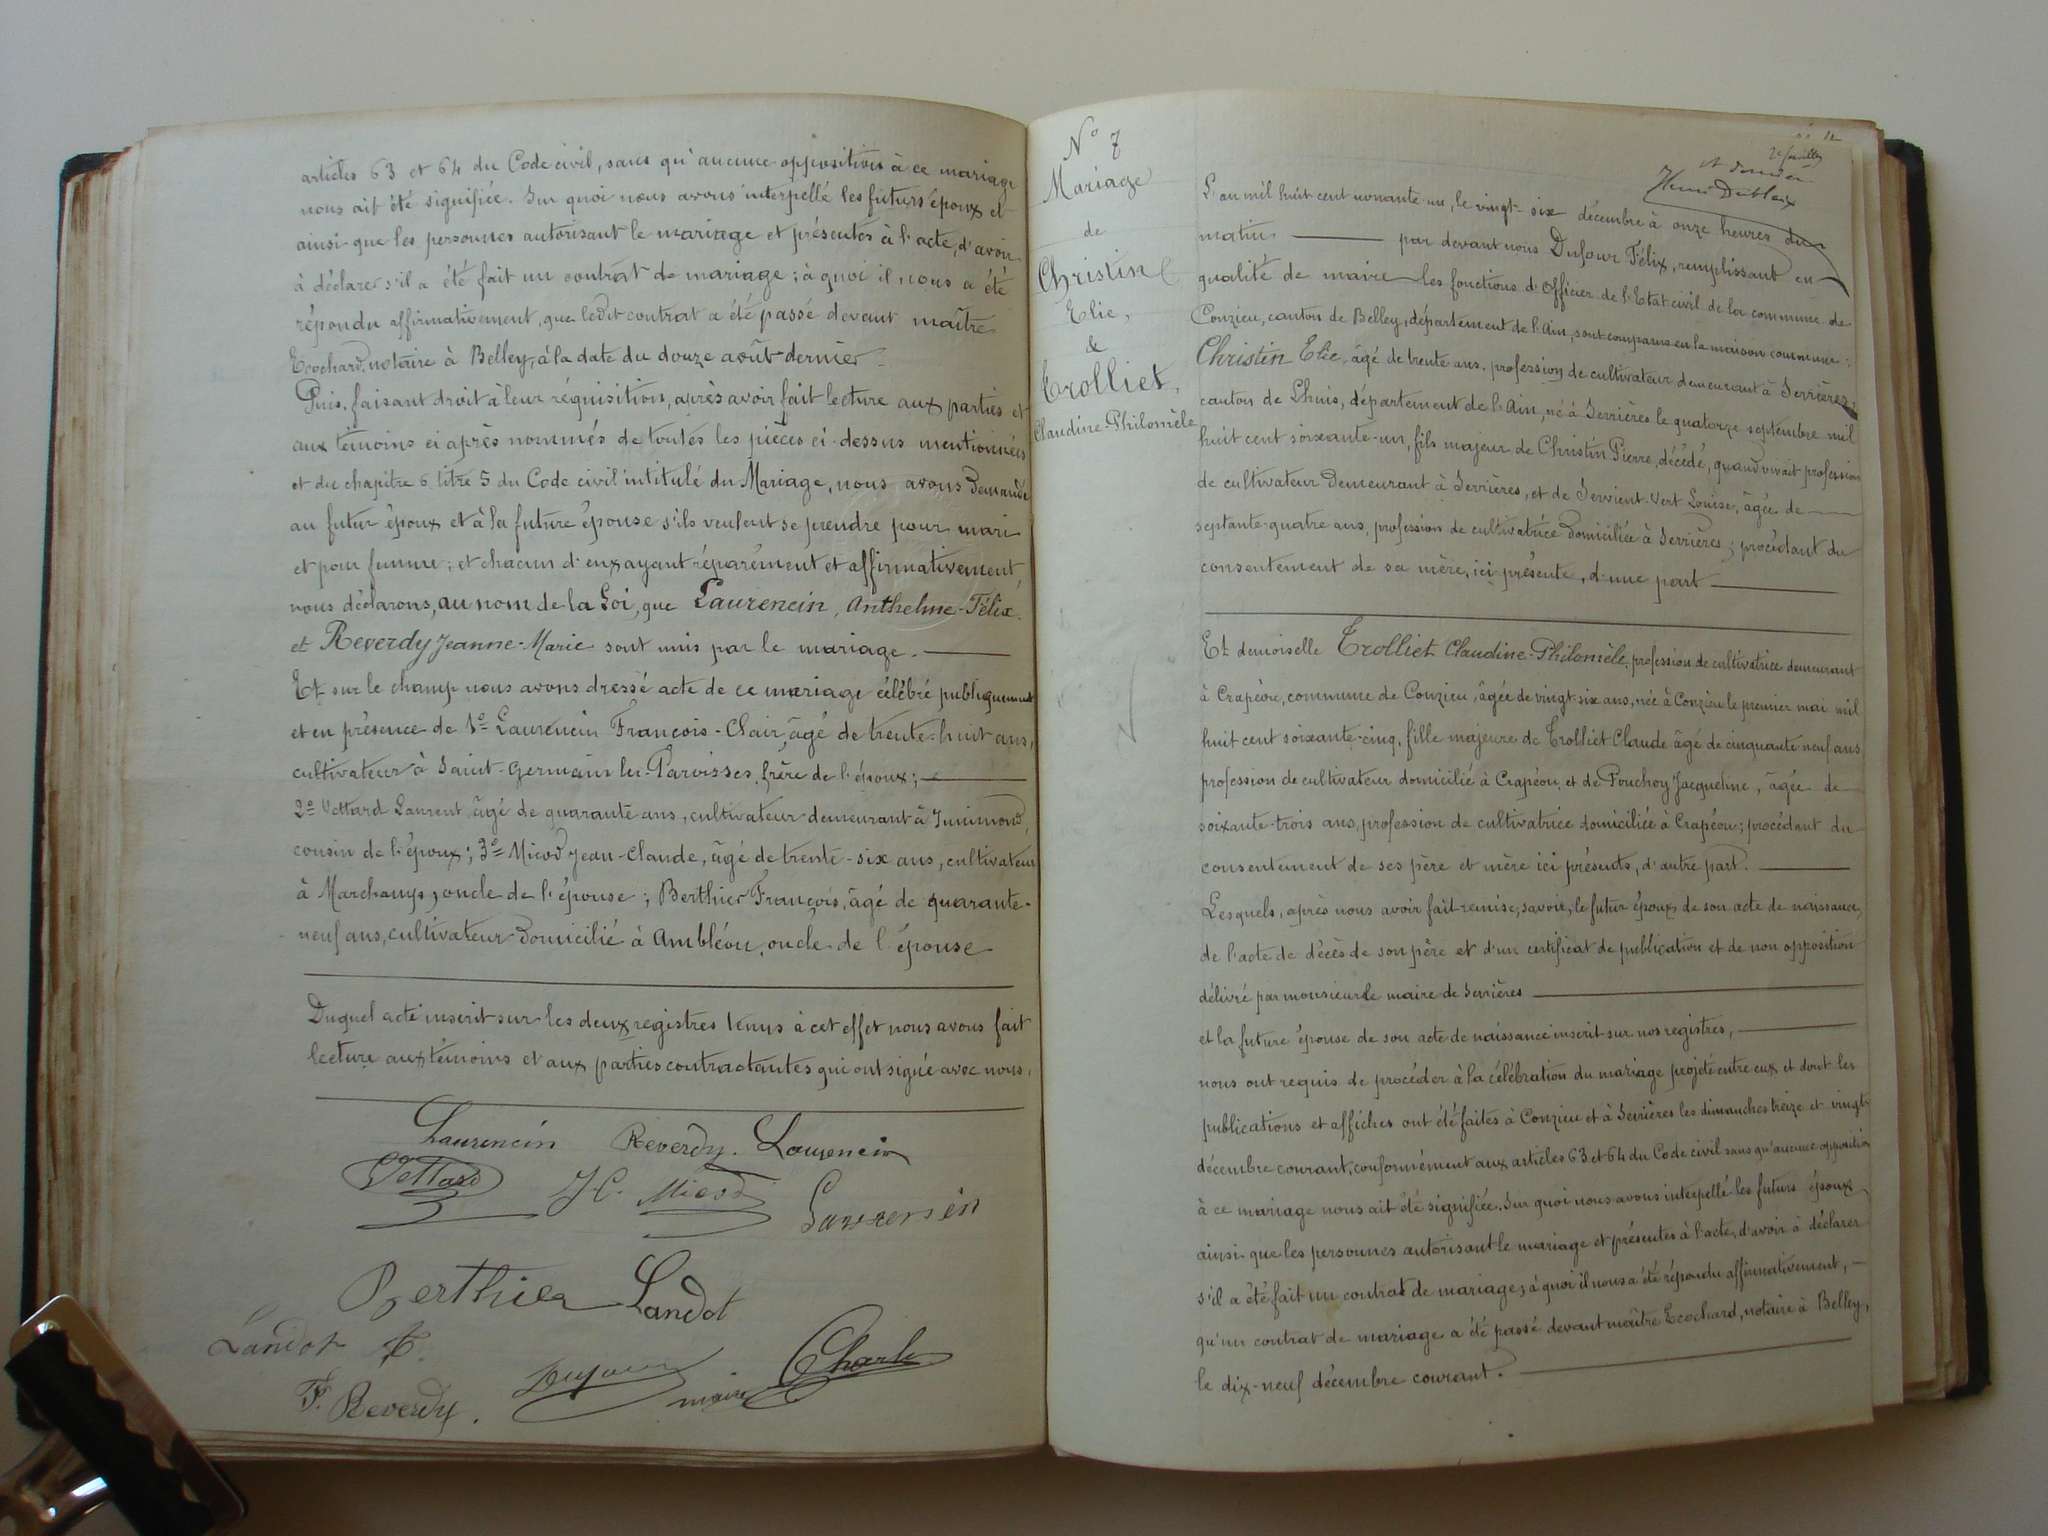 articles 63 et 64 du Code civil, sans qu'aucune opposition à ce mariage
nous ait été signifiée. Sur quoi nous avons interpellé les futurs époux et
ainsi que les personnes autorisant le mariage et présentes à l'acte, d'avoir
à déclarer s'il a été fait un contrat de mariage ; à quoi il nous a été
répondu affirmativement, que ledit contrat a été passé devant maître
Ecochard, notaire à Belley, à la date du douze août dernier.
Puis, faisant droit à leur réquisition, après avoir fait lecture aux parties et
aux témoins ci après nommés de toutes les pièces ci-dessus mentionnées
et du chapitre 6, titre 5 du Code civil intitulé du Mariage, nous avons demandé
au futur époux et à la future épouse s'ils veulent se prendre pour mari
et pour femme ; et chacun d'eux ayant séparément et affirmativement,
nous déclarons, au nom de la Loi, que Laurencin, Anthelme-Félix
et Reverdy Jeanne-Marie sont unis par le mariage.
Et sur le champ nous avons dressé acte de ce mariage célébré publiquement
et en présence de 1º Laurencin François-Clair, âgé de trente-huit ans,
cultivateur à Saint-Germain les-Paroisses, frère de l'époux ;
2º Vettard Laurent, âgé de quarante ans, cultivateur demeurant à
cousin de l'époux ; 3º Micod Jean-Claude, âgé de trente-six ans, cultivateur
à Marchamp, oncle de l'épouse ; Berthier François, âgé de quarante-
neuf ans, cultivateur domicilié à Ambléon, oncle de l'épouse
Duquel acte inscrit sur les deux registres tenus à cet effet nous avons fait
lecture aux témoins et aux parties contractantes qui ont signé avec nous.
Laurencin Reverdy. Laurencin
Vettard J C. Micod Laurencin
Berthier Landot
Landot
F. Reverdy. Dufour maire Charle
Nº 7
Mariage
de
Christin
Elie,
&
Trolliet,
Claudine-Philomèle
12
et dernier
L'an mil huit cent nonante un, le vingt-six décembre à onze heures du
matin par devant nous Dufour Félix, remplissant en
qualité de maire les fonctions d'Officier de l'Etat civil de la commune de
Conzieu, canton de Belley, département de l'Ain, sont comparus en la maison commune :
Christin Elie, âgé de trente ans, profession de cultivateur demeurant à Serrières,
canton de Lhuis, département de l'Ain, né à Serrières le quatorze septembre mil
huit cent soixante-un, fils majeur de Christin Pierre, décédé, quand vivait profession
de cultivateur demeurant à Serrières, et de Servient-Vert Louise, âgée de
septante-quatre ans, profession de cultivatrice domiciliée à Serrières ; procédant du
consentement de sa mère, ici présente, d'une part
Et demoiselle Trolliet Claudine-Philomèle, profession de cultivatrice demeurant
à Crapéou, commune de Conzieu, âgée de vingt-six ans, née à Conzieu le premier mai mil
huit cent soixante-cinq, fille majeure de Trolliet Claude âgé de cinquante neuf ans
profession de cultivateur domicilié à Crapéou, et de Pouchoy Jacqueline, âgée de
soixante-trois ans, profession de cultivatrice domiciliée à Crapéou ; procédant du
consentement de ses père et mère ici présents, d'autre part.
Lesquels, après nous avoir fait remise, savoir, le futur époux de son acte de naissance,
de l'acte de décès de son père et d'un certificat de publication et de non opposition
délivré par monsieur le maire de Serrières
et la future épouse de son acte de naissance inscrit sur nos registres,
nous ont requis de procéder à la célébration du mariage projeté entre eux et dont les
publications et affiches ont été faites à Conzieu et à Serrières les dimanches treize et vingt
décembre courant, conformément aux articles 63 et 64 du Code civil sans qu'aucune opposition
à ce mariage nous ait été signifiée. Sur quoi nous avons interpellé les futurs époux
ainsi que les personnes autorisant le mariage et présentes à l'acte, d'avoir à déclarer
s'il a été fait un contrat de mariage, à quoi il nous a été répondu affirmativement,
qu'un contrat de mariage a été passé devant maître Ecochard, notaire à Belley,
le dix-neuf décembre courant.